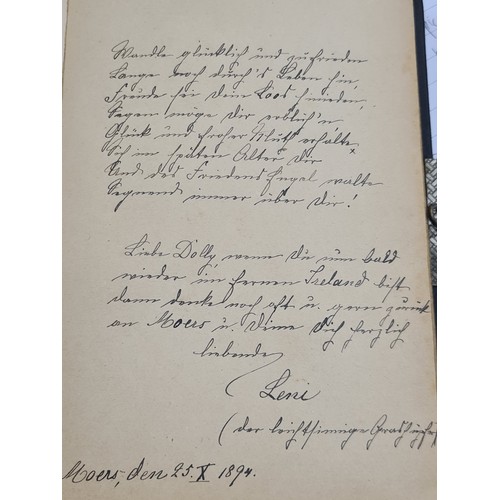 Wandle glücklich und zufrieden
Lange noch durch's Leben hin,
Freude sei dein Loos hienieden,
Segen möge dir erblüh'n
Glück und froher Muth erhalte
Sich im späten Alter dir
Und des Friedens Engel walte
Segnend immer über dir!
Liebe Dolly, wenn Du nun bald
wieder im fernen Ireland bist
dann denke noch oft u. gern zurück
an Moers u. Deine Dich herzlich
liebende
Leni
(der leichtsinnige Grashüpfer)
Moers, den 25. X 1894.